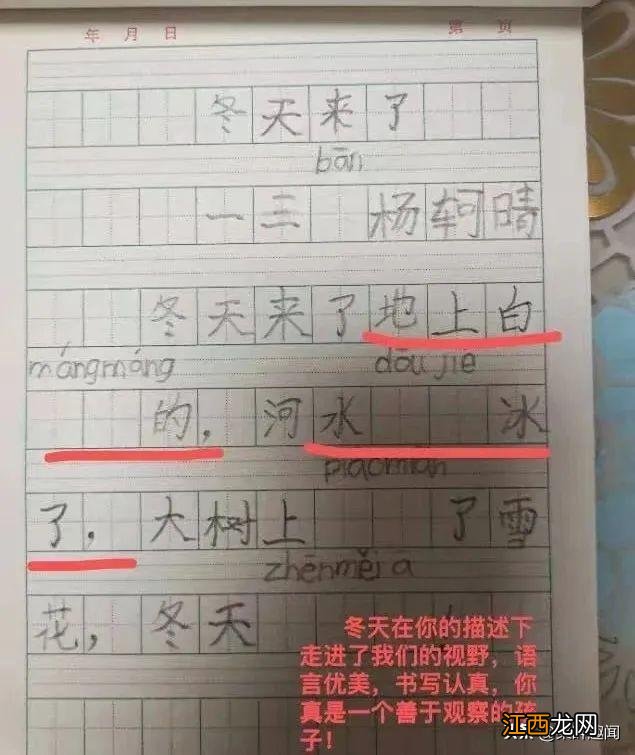 年 月 日 第 页
冬天来了
bān
一三 杨轲晴
冬天来了地上白
mángmáng dōu jié
的，河水 冰
piāomiǎn
了，大树上 了雪
zhēnměi a
花，冬天
冬天在你的描述下
走进了我们的视野，语
言优美，书写认真，你
真是一个善于观察的孩
子！
江西龙网